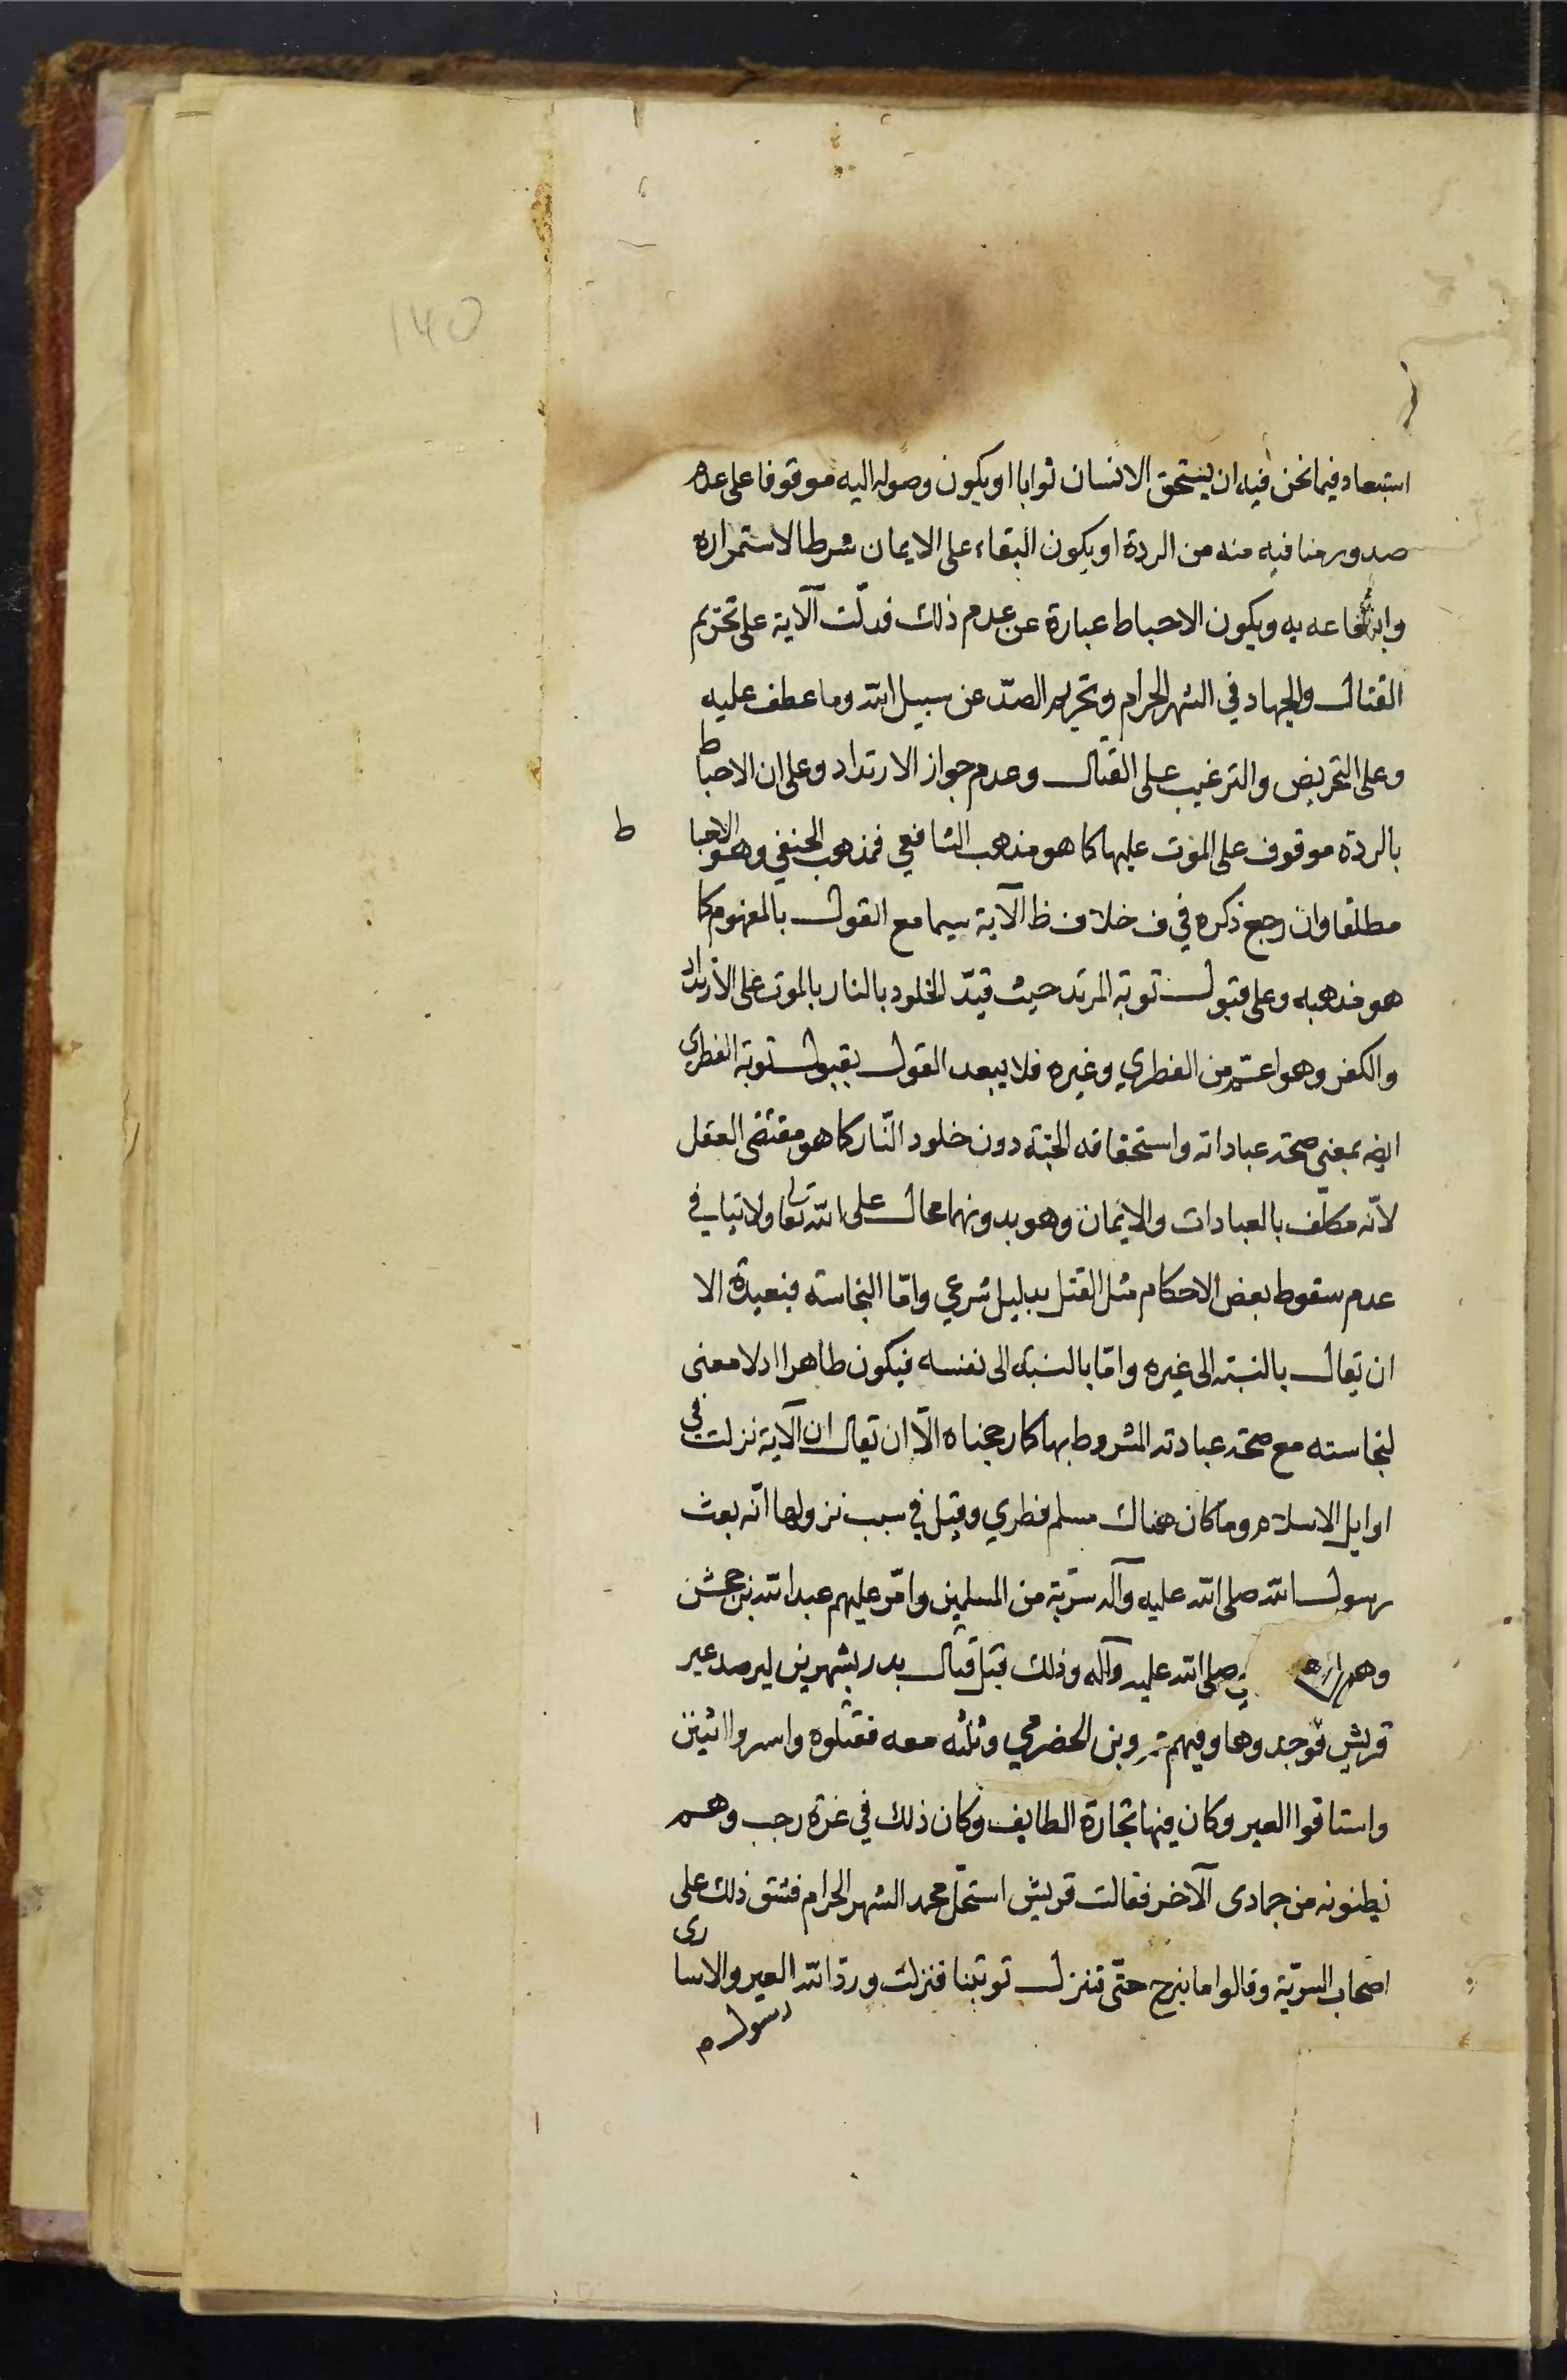 استبعاد فيما نحن فيه ان يستحق الانسان ثوابا او يكون وصوله اليه موقوفا على عدم
صدور منافيه منه من الردة او يكون البقاء على الايمان شرطا لاستمراره
وانتفاعه به ويكون الاحباط عبارة عن عدم ذلك فدلّت الآية على تحريم
القتال والجهاد في الشهر الحرام وتحريم الصدّ عن سبيل الله وما عطف عليه
وعلى التحريض والترغيب على القتال وعدم جواز الارتداد وعلى ان الاحباط
بالردة موقوف على الموت عليها كما هو مذهب الشافعي فمذهب الحنفي وهو الاحباط
مطلقا وان رجع ذكره في ف خلاف ظ الآية سيما مع القول بالمفهوم كما
هو مذهبه وعلى قبول توبة المرتد حيث قيّد الخلود بالنار بالموت على الارتداد
والكفر وهو اعمّ من الفطري وغيره فلا يبعد القول بقبول توبة الفطري
ايضه بمعنى صحة عباداته واستحقاقه الجنة دون خلود النّار كما هو مقتضى العقل
لانّه مكلّف بالعبادات والايمان وهو بدونهما محال على الله تعالى ولا ينافي
عدم سقوط بعض الاحكام مثل القتل بدليل شرعي وامّا النجاسة فبعيدة الا
ان يقال بالنسبة الى غيره وامّا بالنسبة الى نفسه فيكون طاهرا اذ لا معنى
لنجاسته مع صحة عبادته المشروط بها كما رجحناه الّا ان يقال ان الآية نزلت في
اوايل الاسلام وما كان هناك مسلم فطري وقيل في سبب نزولها انّه بعث
رسول الله صلى الله عليه وآله سريّة من المسلمين وامّر عليهم عبدالله بن جحش
وهم صلى الله عليه وآله وذلك قبل قتال بدر بشهرين ليرصد عير
قريش فوجدوها وفيهم وبن الحضرمي وثلثه معه فقتلوه واسروا اثنين
واستاقوا العير وكان فيها تجارة الطايف وكان ذلك في غرة رجب وهم
يظنونه من جمادى الآخر فقالت قريش استحلّ محمد الشهر الحرام فشق ذلك على
اصحاب السريّة وقالوا ما نبرح حتّى تنزل توبتنا فنزلت وردّ الله العير والاسارى
رسول م